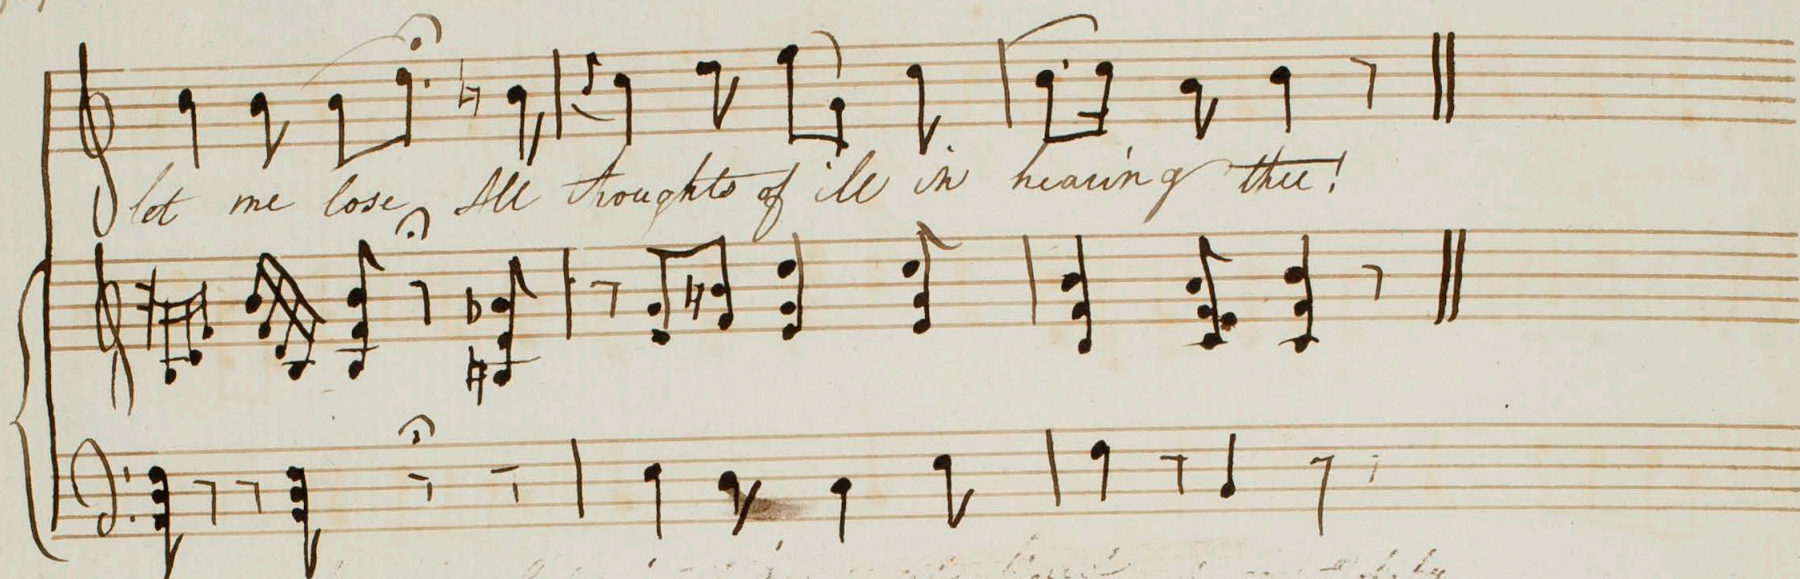 let me lose All thoughts of ill in hearing thee!